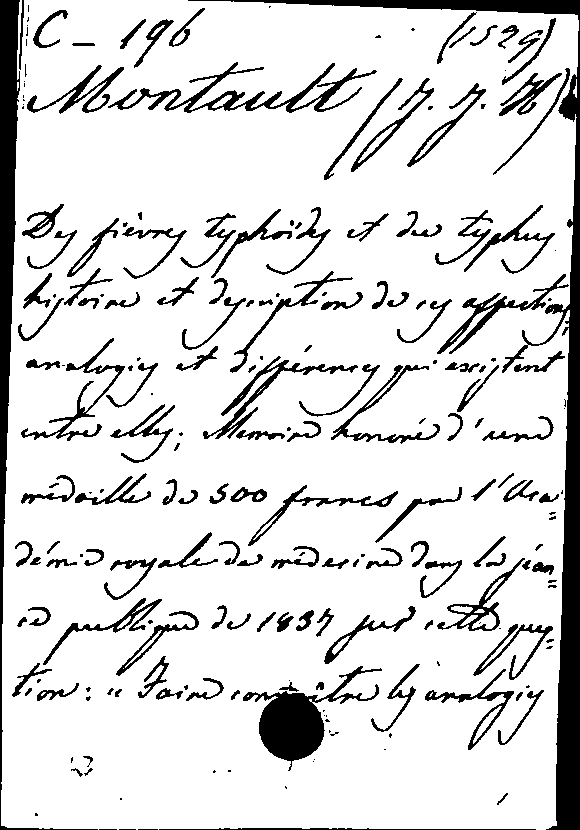 C - 196 (1529)
Montault (J. J. H)
Des fièvres typhoïdes et du typhus
histoire et description de ces affections,
analogies et différences qui existent
entre elles; Memoire honoré d'une
médaille de 500 francs par l'Aca=
démie royale de médecine dans la séan=
ce publique de 1837 sur cette ques=
tion: « Faire connaître les analogies